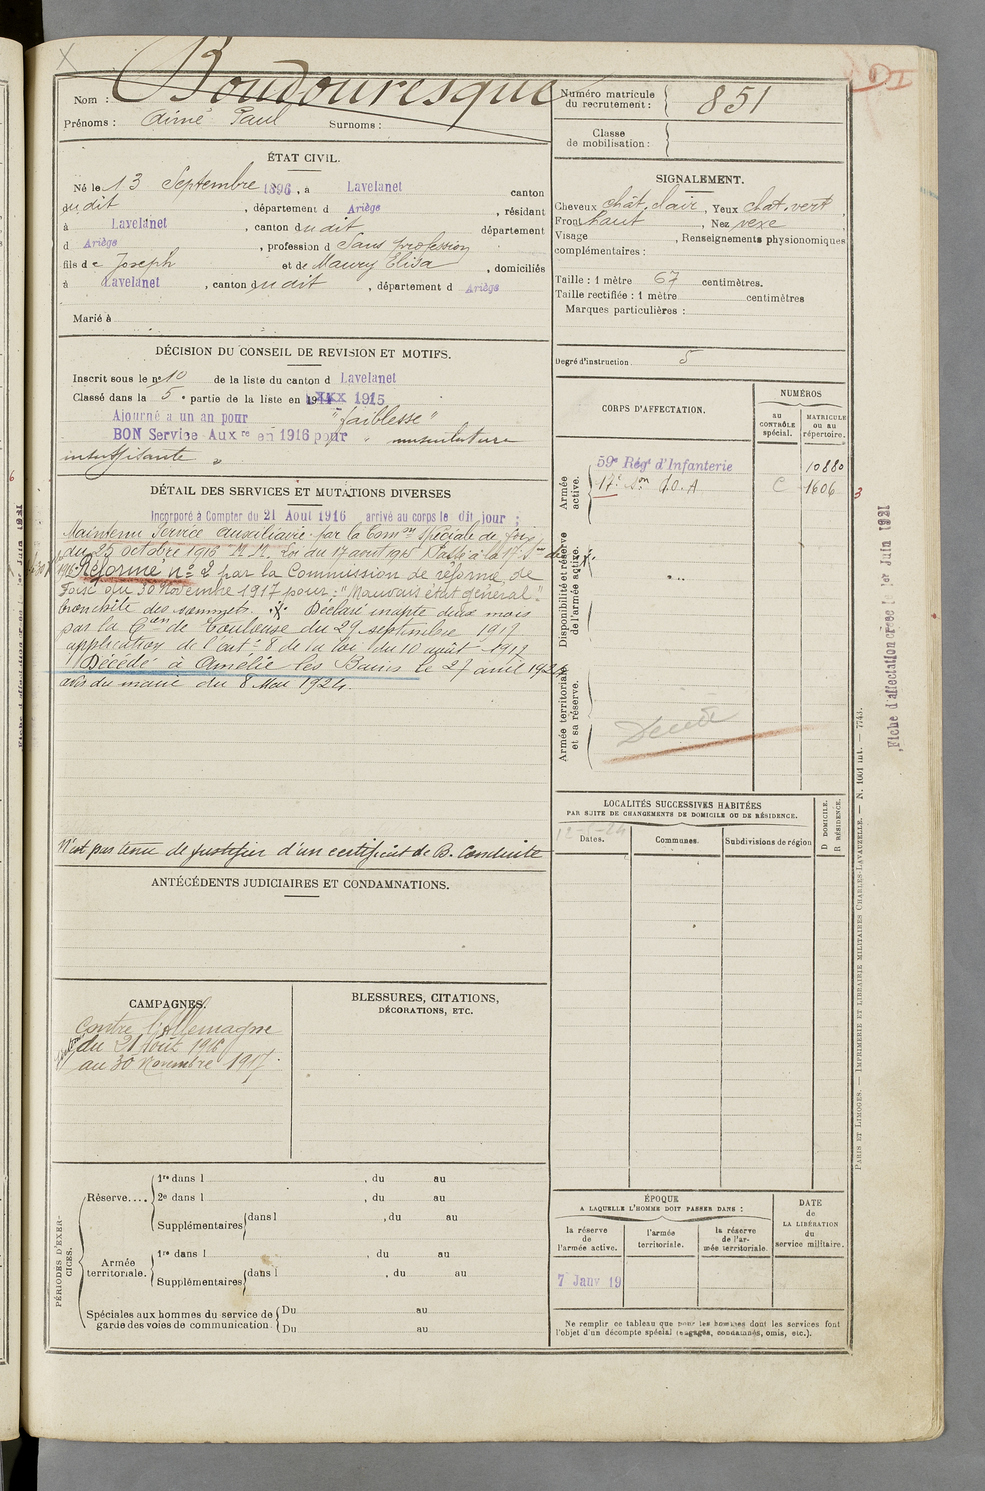 Nom : Boudouresque
Prénoms : Aimé Paul Surnoms :
ÉTAT CIVIL.
Né le 13 Septembre 1896, à Lavelanet canton
dudit, département d Ariège, résidant
à Lavelanet, canton dudit département
d Ariège, profession d Sans profession
fils de Joseph et de Maury Elisa, domiciliés
à Lavelanet, canton dudit, département d Ariège
Marié à
DÉCISION DU CONSEIL DE REVISION ET MOTIFS.
Inscrit sous le n° 10 de la liste du canton d Lavelanet
Classé dans la 5e partie de la liste en 1915
Ajourné a un an pour "faiblesse"
BON Service Auxre en 1916 pour " musculature
insuffisante "
DÉTAIL DES SERVICES ET MUTATIONS DIVERSES
Incorporé à Compter du 21 Aout 1916 arrivé au corps le dit jour ;
Maintenu Service auxiliaire par la Comon Spéciale de foix
du 25 octobre 1916 Loi du 17 août 1915 Passé à la 17e Son de
Réformé n° 2 par la Commission de réforme de
Foix du 30 Novembre 1917 pour : "Mauvais état général"
bronchite des sommets. Déclaré inapte deux mois
par la Con de Toulouse du 29 septembre 1917
application de l'art 8 de la loi du 10 août 1917
Décédé à Amélie les Bains le 27 avril 1924
avis du maire du 8 Mai 1924.
N'est pas tenu de justifier d'un certificat de B. Conduite
ANTÉCÉDENTS JUDICIAIRES ET CONDAMNATIONS.
CAMPAGNES.
Contre l'Allemagne
du 21 Août 1916
au 30 Novembre 1917.
BLESSURES, CITATIONS,
DÉCORATIONS, ETC.
PÉRIODES D'EXER-
CICES.
Réserve....
1re dans l , du au
2e dans l , du au
Supplémentaires dans l , du au
Armée
territoriale.
1re dans l , du au
Supplémentaires dans l , du au
Spéciales aux hommes du service de
garde des voies de communication.
Du au
Du au
DI
Numéro matricule
du recrutement : 851
Classe
de mobilisation :
SIGNALEMENT.
Cheveux chât. clair, Yeux chat. vert,
Front haut, Nez vexe
Visage , Renseignements physionomiques
complémentaires :
Taille : 1 mètre 67 centimètres.
Taille rectifiée : 1 mètre centimètres
Marques particulières :
Degré d'instruction. 5
CORPS D'AFFECTATION.
NUMÉROS
au
CONTRÔLE
spécial.
MATRICULE
ou au
répertoire.
Armée
active.
59e Régt d'Infanterie 10880
17e Son C.O.A C 1606
3
Disponibilité et réserve
de l'armée active.
Armée territoriale
et sa réserve.
Décédé
LOCALITÉS SUCCESSIVES HABITÉES
PAR SUITE DE CHANGEMENTS DE DOMICILE OU DE RÉSIDENCE.
Dates.
Communes.
Subdivisions de région
D DOMICILE.
R RÉSIDENCE.
ÉPOQUE
A LAQUELLE L'HOMME DOIT PASSER DANS :
la réserve
de
l'armée active.
l'armée
territoriale.
la réserve
de l'ar-
mée territoriale.
DATE
de
LA LIBÉRATION
du
service militaire.
7 Janv 19
Ne remplir ce tableau que pour les hommes dont les services font
l'objet d'un décompte spécial (engagés, condamnés, omis, etc.).
PARIS ET LIMOGES. — IMPRIMERIE ET LIBRAIRIE MILITAIRES CHARLES-LAVAUZELLE. — N. 1001 int. — 7743.
Fiche d'affectation créée le 1er Juin 1921